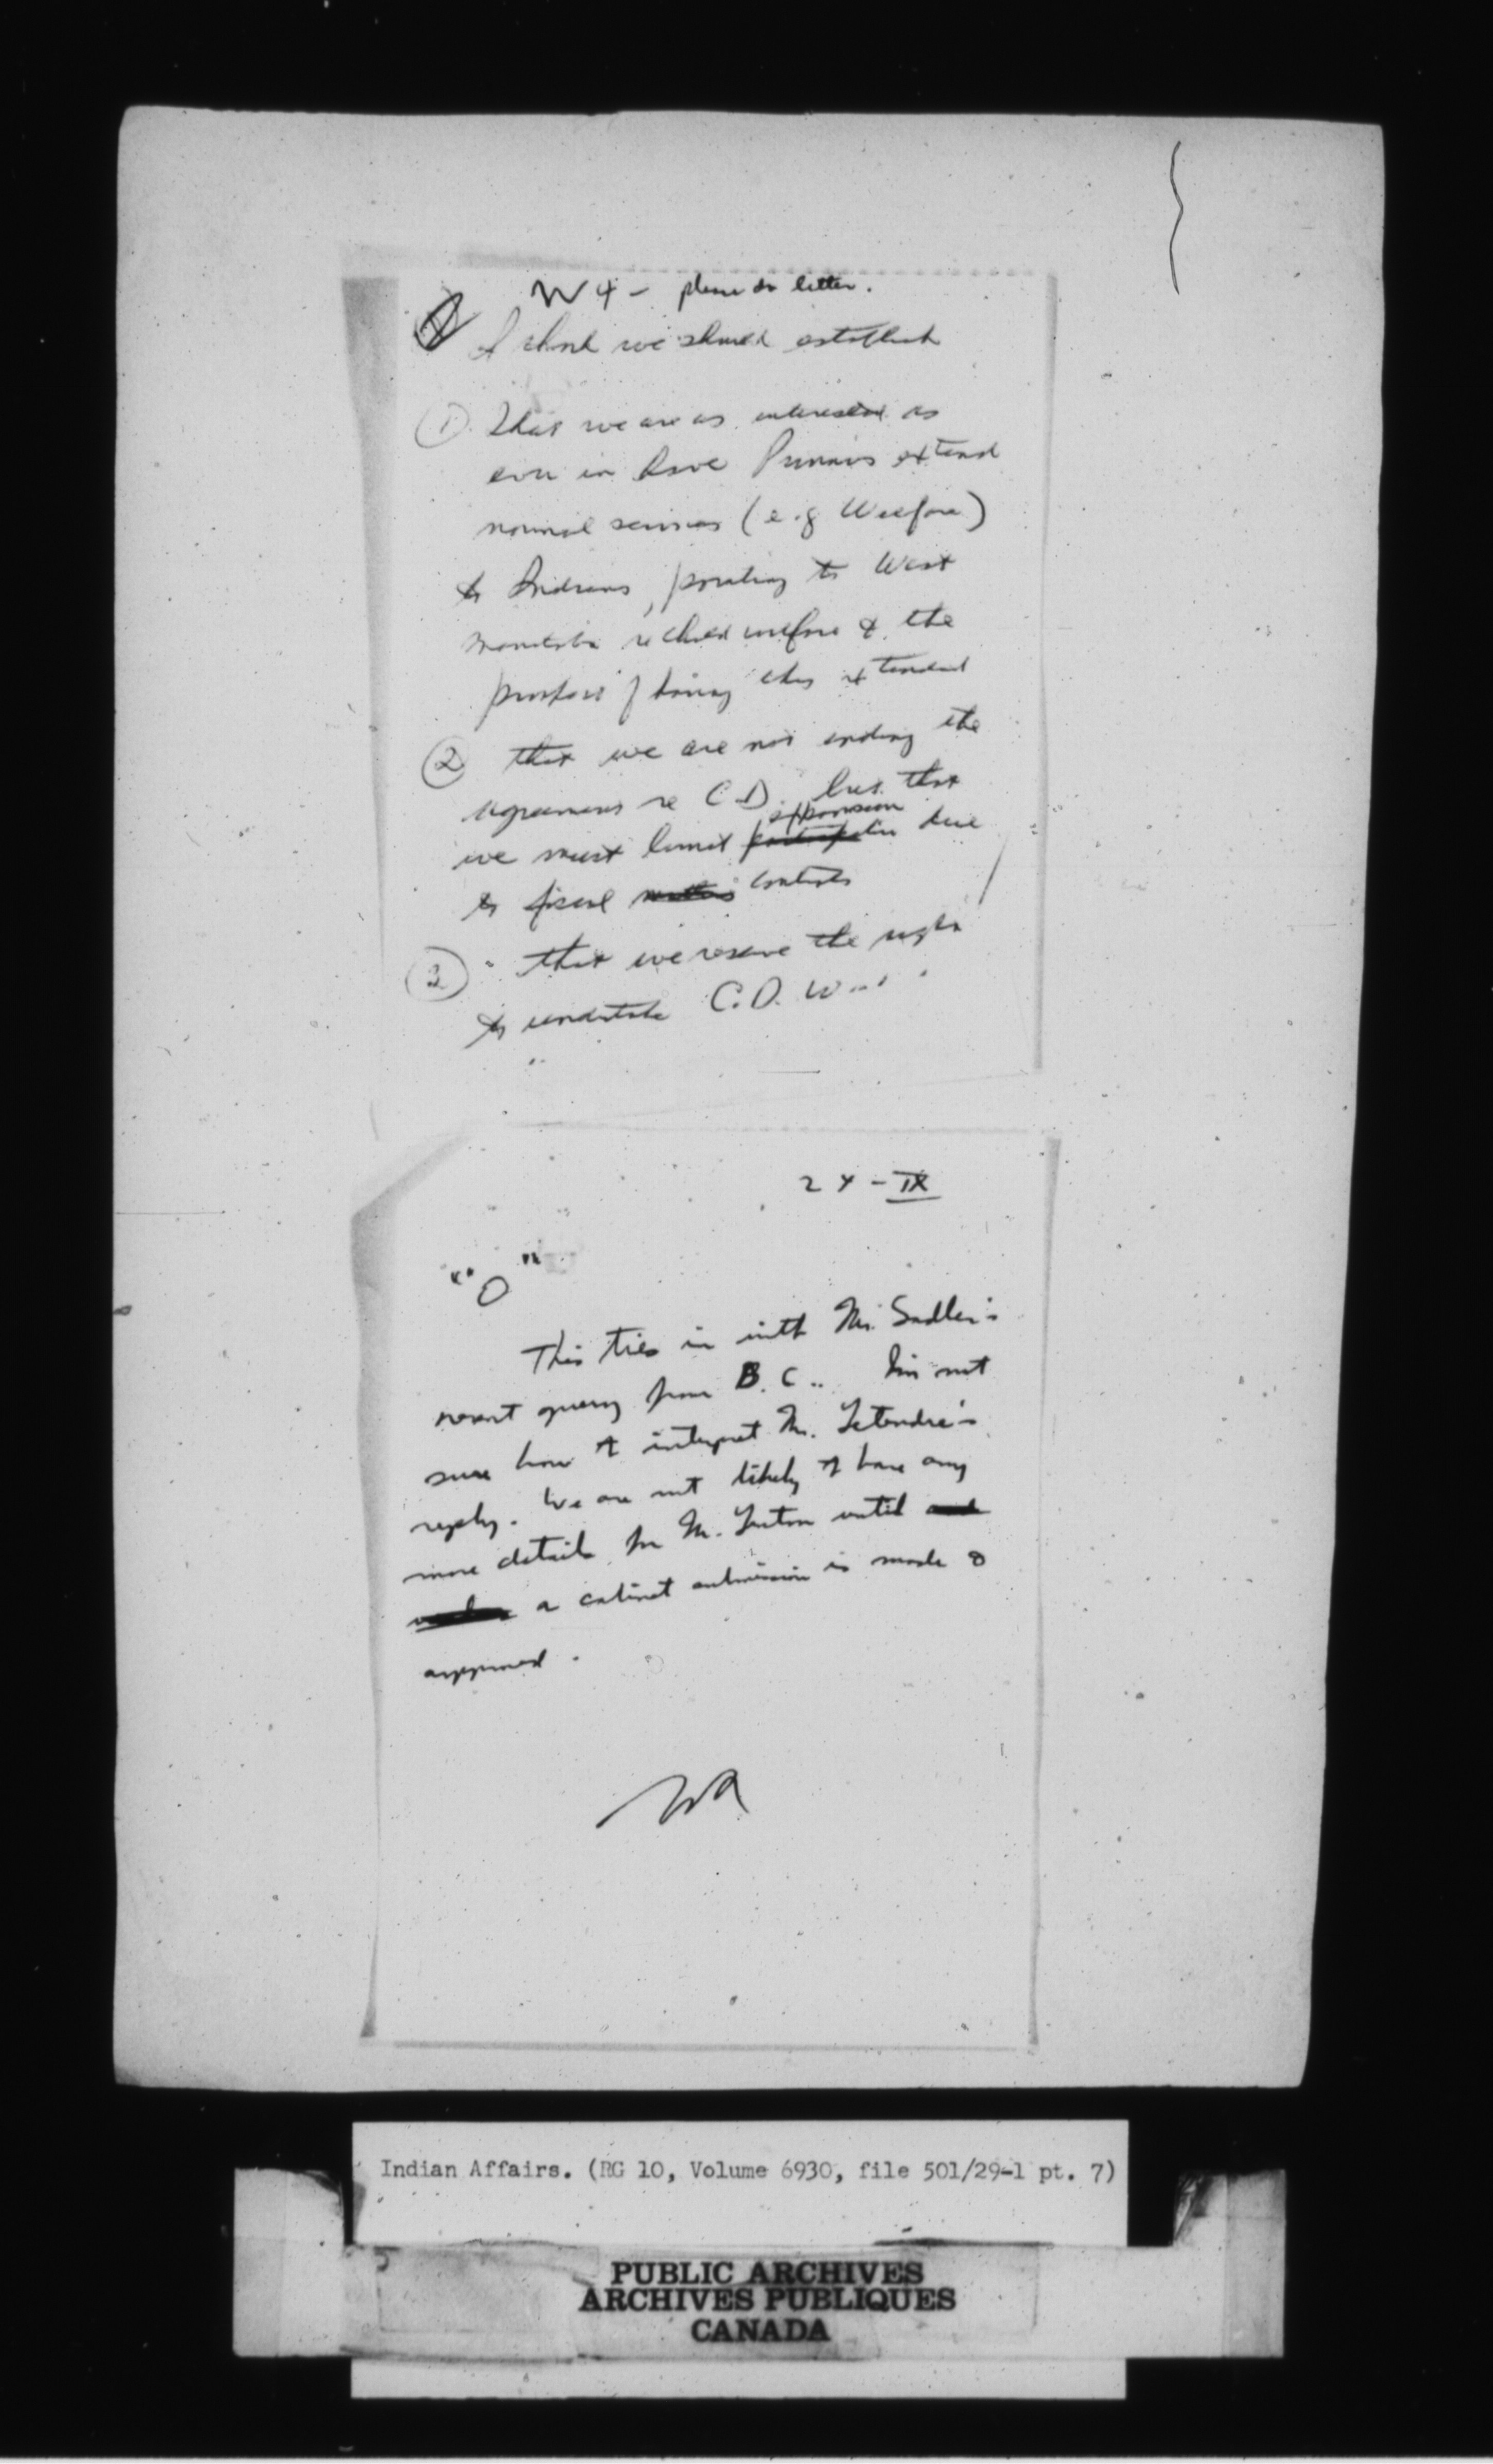 W4 - please do letter.
I think we should establish
① That we are as interested as
ever in have Provinces extend
normal services (e.g Welfare)
to Indians, pointing to West
Manitoba re child welfare & the
prospect of having this extended
② that we are not ending the
agreements re C.D. but that
expansion
we must limit participation due
to fiscal controls
③ that we reserve the right
to undertake C.D.
24-IX
"O"
This ties in with Mr. Sadler's
recent query from B.C.. I'm not
sure how to interpret Mr. Letendre's
reply. We are not likely to have any
more details for Mr. until
a cabinet submission is made &
approved.
Indian Affairs. (RG 10, Volume 6930, file 501/29-1 pt. 7)
PUBLIC ARCHIVES
ARCHIVES PUBLIQUES
CANADA